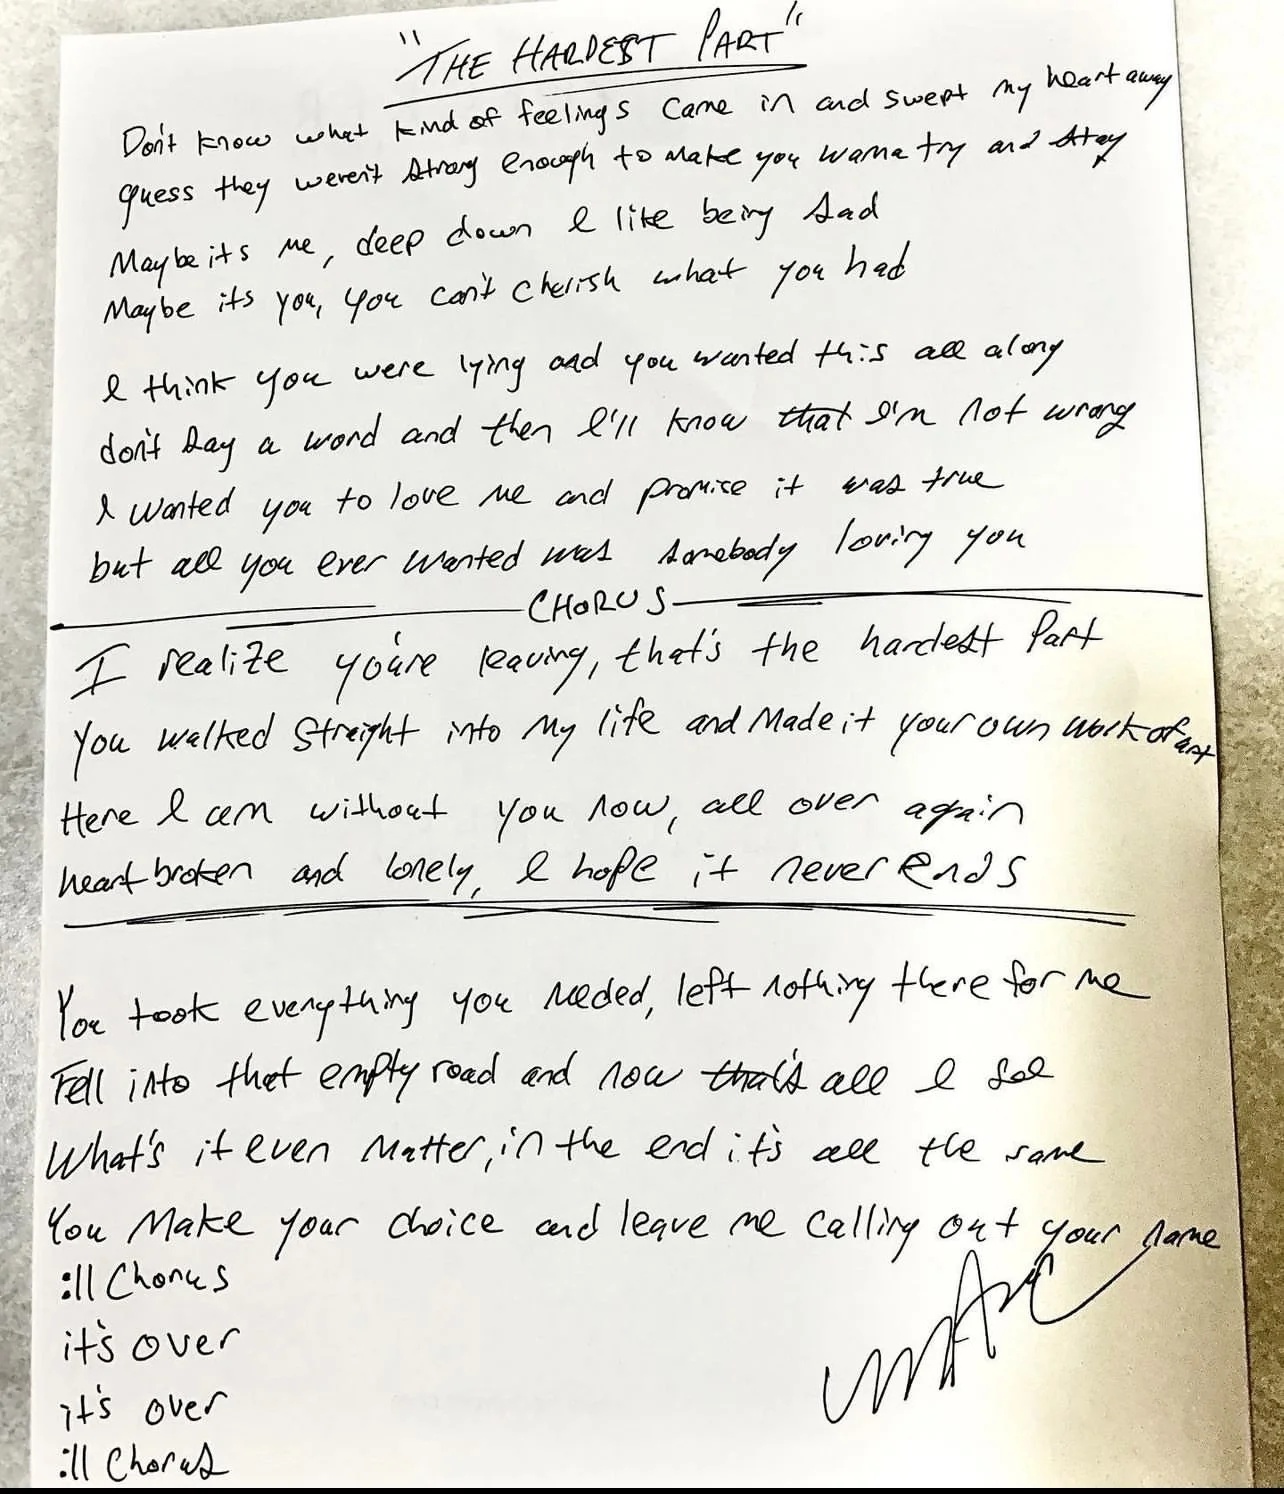 "THE HARDEST PART"
Don't know what kind of feelings came in and swept my heart away
guess they weren't strong enough to make you wanna try and stay
Maybe its me, deep down I like being sad
Maybe its you, you can't cherish what you had
I think you were lying and you wanted this all along
don't say a word and then I'll know that I'm not wrong
I wanted you to love me and promise it was true
but all you ever wanted was somebody loving you
CHORUS
I realize you're leaving, that's the hardest part
You walked straight into my life and made it your own work of art
Here I am without you now, all over again
heart broken and lonely, I hope it never ends
You took everything you needed, left nothing there for me
Fell into that empty road and now that's all I see
What's it even matter, in the end it's all the same
You make your choice and leave me calling out your name
:|| Chorus
it's over
it's over
:|| Chorus